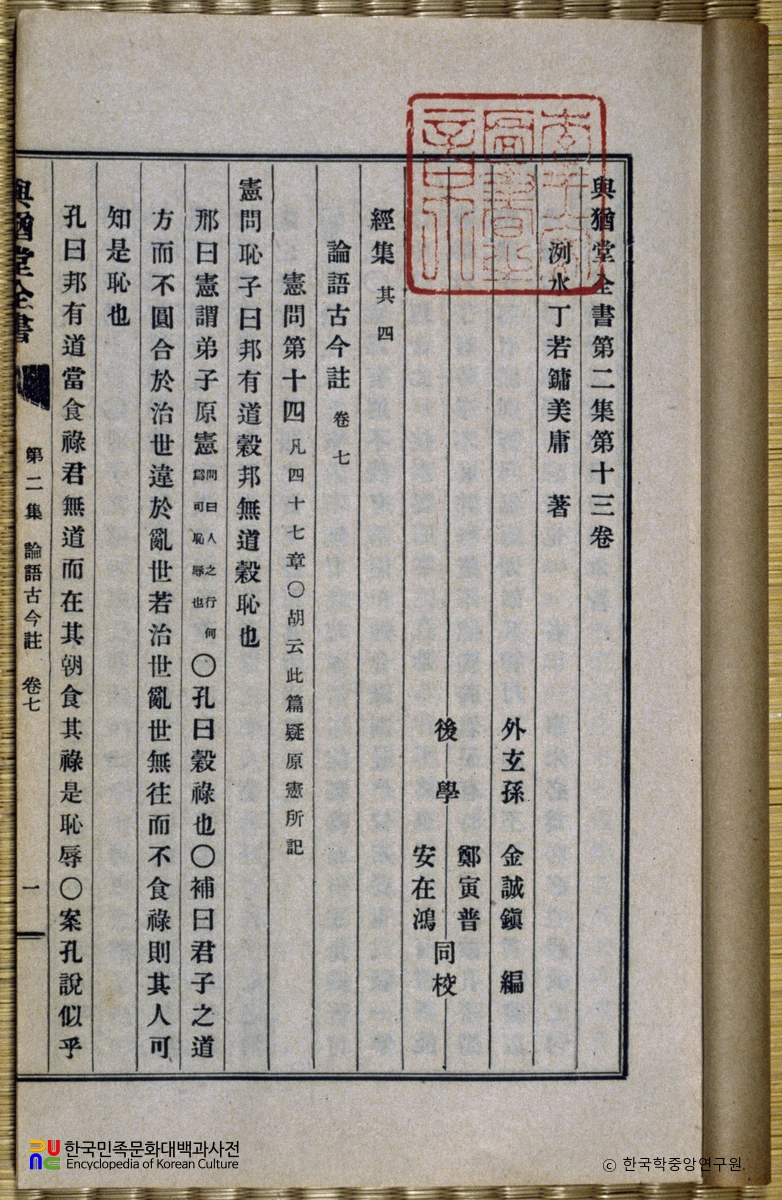 與猶堂全書第二集第十三卷
洌水丁若鏞美庸 著
外玄孫 金誠鎭 編
後學 鄭寅普
安在鴻 同校
經集 其四
論語古今註 卷七
憲問第十四 凡四十七章〇胡云此篇疑原憲所記
憲問恥子曰邦有道穀邦無道穀恥也
邢曰憲謂弟子原憲 問曰人之行何 爲可恥辱也 〇孔曰穀祿也〇補曰君子之道
方而不圓合於治世違於亂世若治世亂世無往而不食祿則其人可
知是恥也
孔曰邦有道當食祿君無道而在其朝食其祿是恥辱〇案孔說似乎
與猶堂全書
第二集 論語古今註 卷七
一
한국민족문화대백과사전
Encyclopedia of Korean Culture
© 한국학중앙연구원.